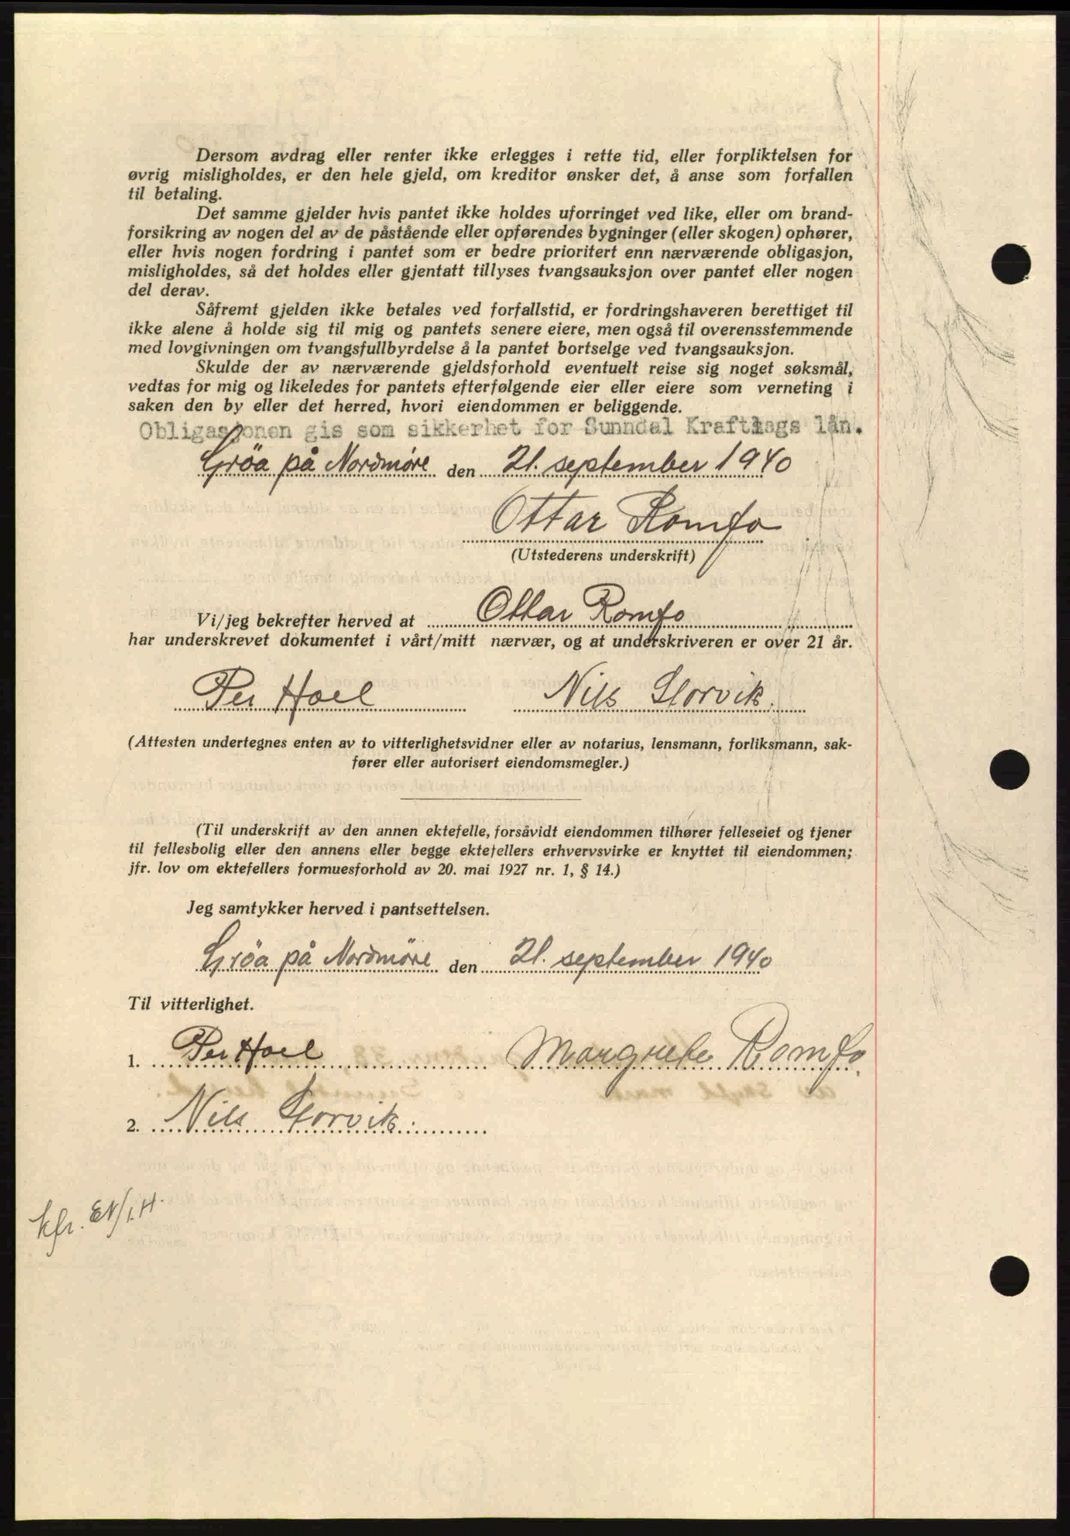 Dersom avdrag eller renter ikke erlegges i rette tid, eller forpliktelsen for
øvrig misligholdes, er den hele gjeld, om kreditor ønsker det, å anse som forfallen
til betaling.
Det samme gjelder hvis pantet ikke holdes uforringet ved like, eller om brand-
forsikring av nogen del av de påstående eller opførendes bygninger (eller skogen) ophører,
eller hvis nogen fordring i pantet som er bedre prioritert enn nærværende obligasjon,
misligholdes, så det holdes eller gjentatt tillyses tvangsauksjon over pantet eller nogen
del derav.
Såfremt gjelden ikke betales ved forfallstid, er fordringshaveren berettiget til
ikke alene å holde sig til mig og pantets senere eiere, men også til overensstemmende
med lovgivningen om tvangsfullbyrdelse å la pantet bortselge ved tvangsauksjon.
Skulde der av nærværende gjeldsforhold eventuelt reise sig noget søksmål,
vedtas for mig og likeledes for pantets efterfølgende eier eller eiere som verneting i
saken den by eller det herred, hvori eiendommen er beliggende.
Obligasjonen gis som sikkerhet for Sunndal Kraftlags lån.
Grøa på Nordmøre den 21. september 1940
Ottar Romfo
(Utstederens underskrift)
Vi/jeg bekrefter herved at Ottar Romfo
har underskrevet dokumentet i vårt/mitt nærvær, og at underskriveren er over 21 år.
Per Hoel Nils Storvik.
(Attesten undertegnes enten av to vitterlighetsvidner eller av notarius, lensmann, forliksmann, sak-
fører eller autorisert eiendomsmegler.)
(Til underskrift av den annen ektefelle, forsåvidt eiendommen tilhører felleseiet og tjener
til fellesbolig eller den annens eller begge ektefellers erhvervsvirke er knyttet til eiendommen;
jfr. lov om ektefellers formuesforhold av 20. mai 1927 nr. 1, § 14.)
Jeg samtykker herved i pantsettelsen.
Grøa på Nordmøre den 21. september 1940
Til vitterlighet.
1. Per Hoel Margrethe Romfo.
2. Nils Storvik.
kfr.